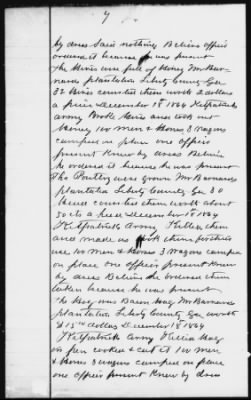 7
by does said nothing Believe officer
ordered it because was present
The Hives was full of Honey Mr Bar-
nards plantation Liberty County Ga
32 Hives considered them worth 2 dollars
a piece December 18 1864 Kilpatricks
army Broke Hives and took out
Honey 100 men & Horses 3 wagons
camped on place one officer
present Knew by dress Believe
he ordered it because he was present
The Poultry were grown Mr Barnards
plantation Liberty County Ga 30
Head considered them worth about
50 cts a head December 18 1864
Kilpatricks Army Killed them
and made as took them for their
use 100 men & Horses 3 wagons camped
on place one officer present Knew
by dress Believe he ordered them
taken because he was present
The Hog was Bacon Hog Mr Barnards
plantation Liberty County Ga worth
15 dollars December 18 1864
Kilpatricks Army Killed Hog
in pen cooked & eat it 100 men
& Horses 3 wagons camped on place
one officer present Knew by dress